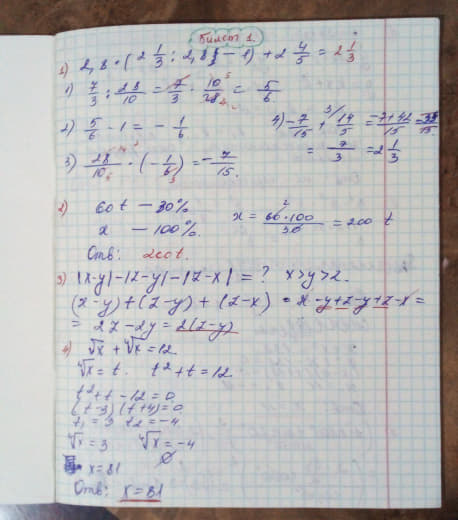 Билет 1.
1) 2,8 · (2 1/3 : 2,8 - 1) + 2 4/5 = 2 1/3
1) 7/3 : 28/10 = 7/3 · 10/28 = 5/6
2) 5/6 - 1 = - 1/6
4) - 7/15 + 14/5 = -7+42/15 = 35/15
= 7/3 = 2 1/3
3) 28/10 · (- 1/6) = - 7/15.
2) 60t — 30%
x — 100%.
x = 60·100/30 = 200 t
Отв: 200t.
3) |x-y|-|z-y|-|z-x| = ? x>y>z.
(x-y)+(z-y)+(z-x) = x-y+z-y+z-x =
= 2z-2y = 2(z-y)
4) √x + ∜x = 12.
∜x = t. t²+t = 12
t²+t-12=0
(t-3)(t+4)=0
t₁ = 3 t₂ = -4
∜x = 3 ∜x = -4
x=81 ∅
Отв: x = 81